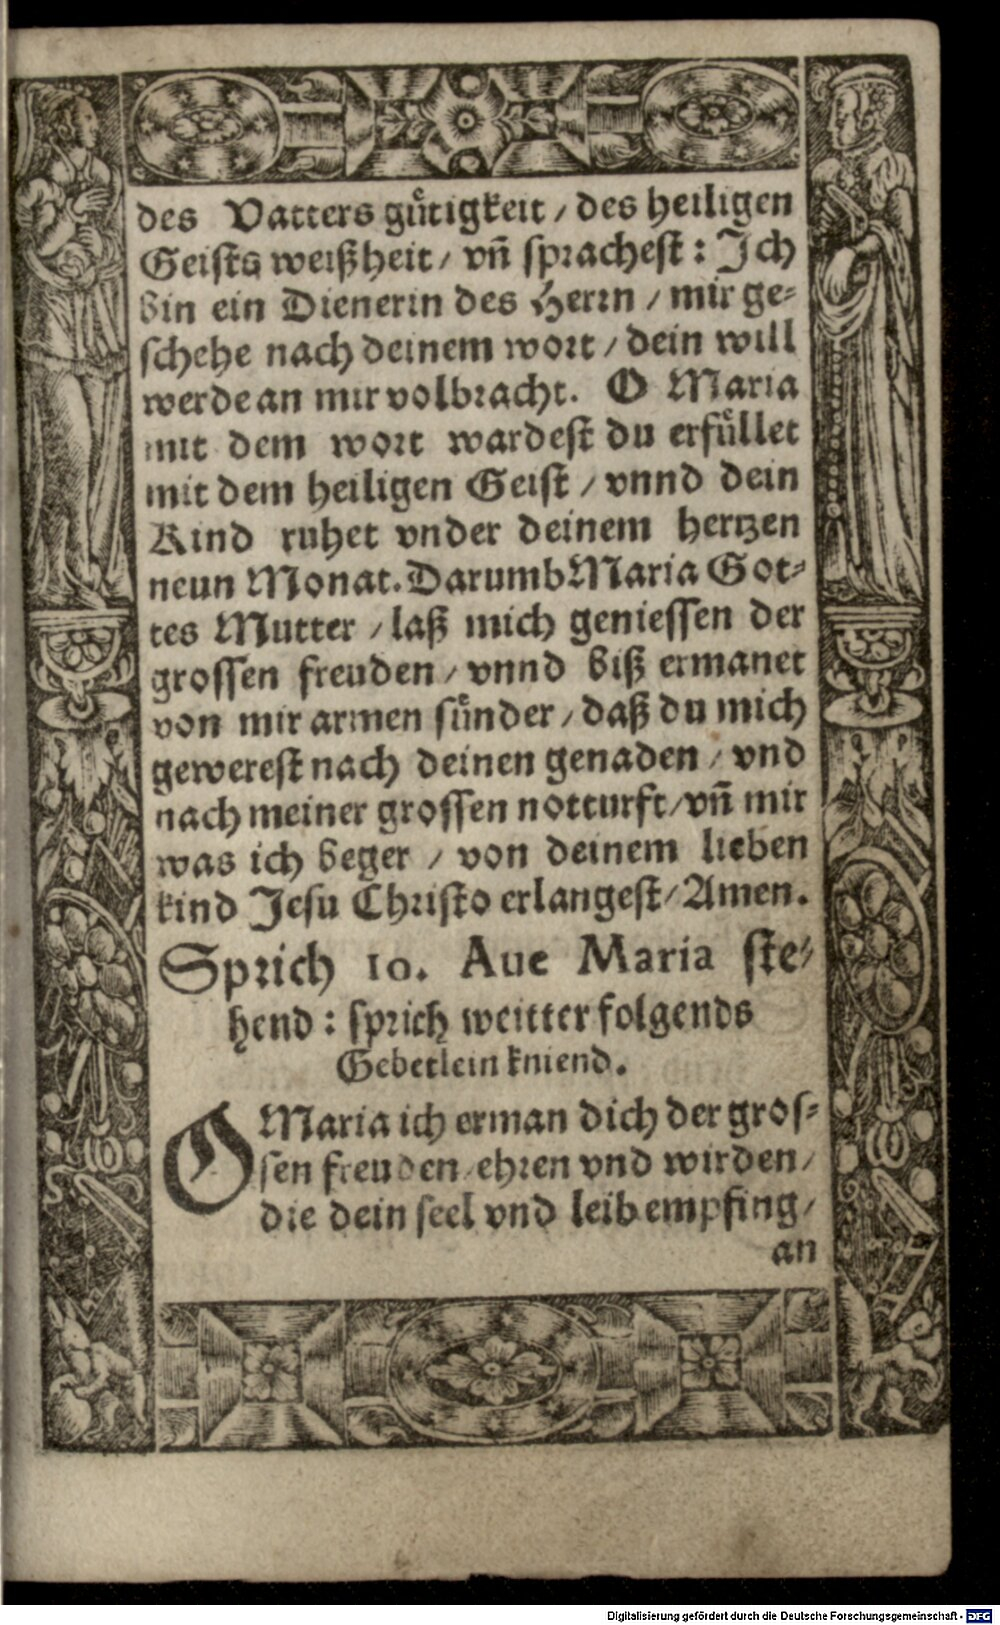 des Vatters guͤtigkeit / des heiligen
Geists weißheit / vñ sprachest : Ich
bin ein Dienerin des Herrn / mir ge-
schehe nach deinem wort / dein will
werde an mir volbracht. O Maria
mit dem wort wardest du erfuͤllet
mit dem heiligen Geist / vnnd dein
Kind ruhet vnder deinem hertzen
neun Monat. Darumb Maria Got-
tes Mutter / laß mich geniessen der
grossen freuden / vnnd biß ermanet
von mir armen suͤnder / daß du mich
gewerest nach deinen genaden / vnd
nach meiner grossen notturft / vñ mir
was ich beger / von deinem lieben
kind Jesu Christo erlangest / Amen.
Sprich 10. Aue Maria ste-
hend : sprich weitter folgends
Gebetlein kniend.
O Maria ich erman dich der gros-
sen freuden / ehren vnd wirden /
die dein seel vnd leib empfing /
an
Digitalisierung gefördert durch die Deutsche Forschungsgemeinschaft - DFG